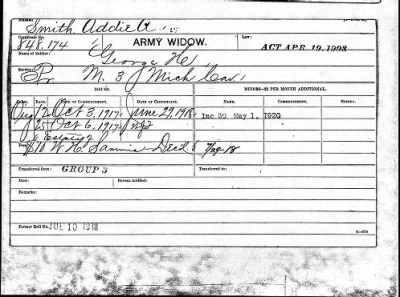 Name:
Smith Addie A.
Certificate No.
848,174
ARMY WIDOW.
Law:
ACT APR. 19, 1908
Name of Soldier:
George H.
Service:
M. 3 Mich Cav.
ISSUE.
MINORS—$2 PER MONTH ADDITIONAL.
Rate. Date of Commencement. Date of Certificate. Name. Commencement. Remarks.
Orig 12 Oct 3, 1917 June 27, 1918 Inc 30 May 1, 1920
25 Oct 6, 1917
$10 W. H. Decl. 7/29-18
Transferred from: GROUP 3 Transferred to:
Died: Bureau notified:
Remarks:
Former Roll No. JUL 10 1918